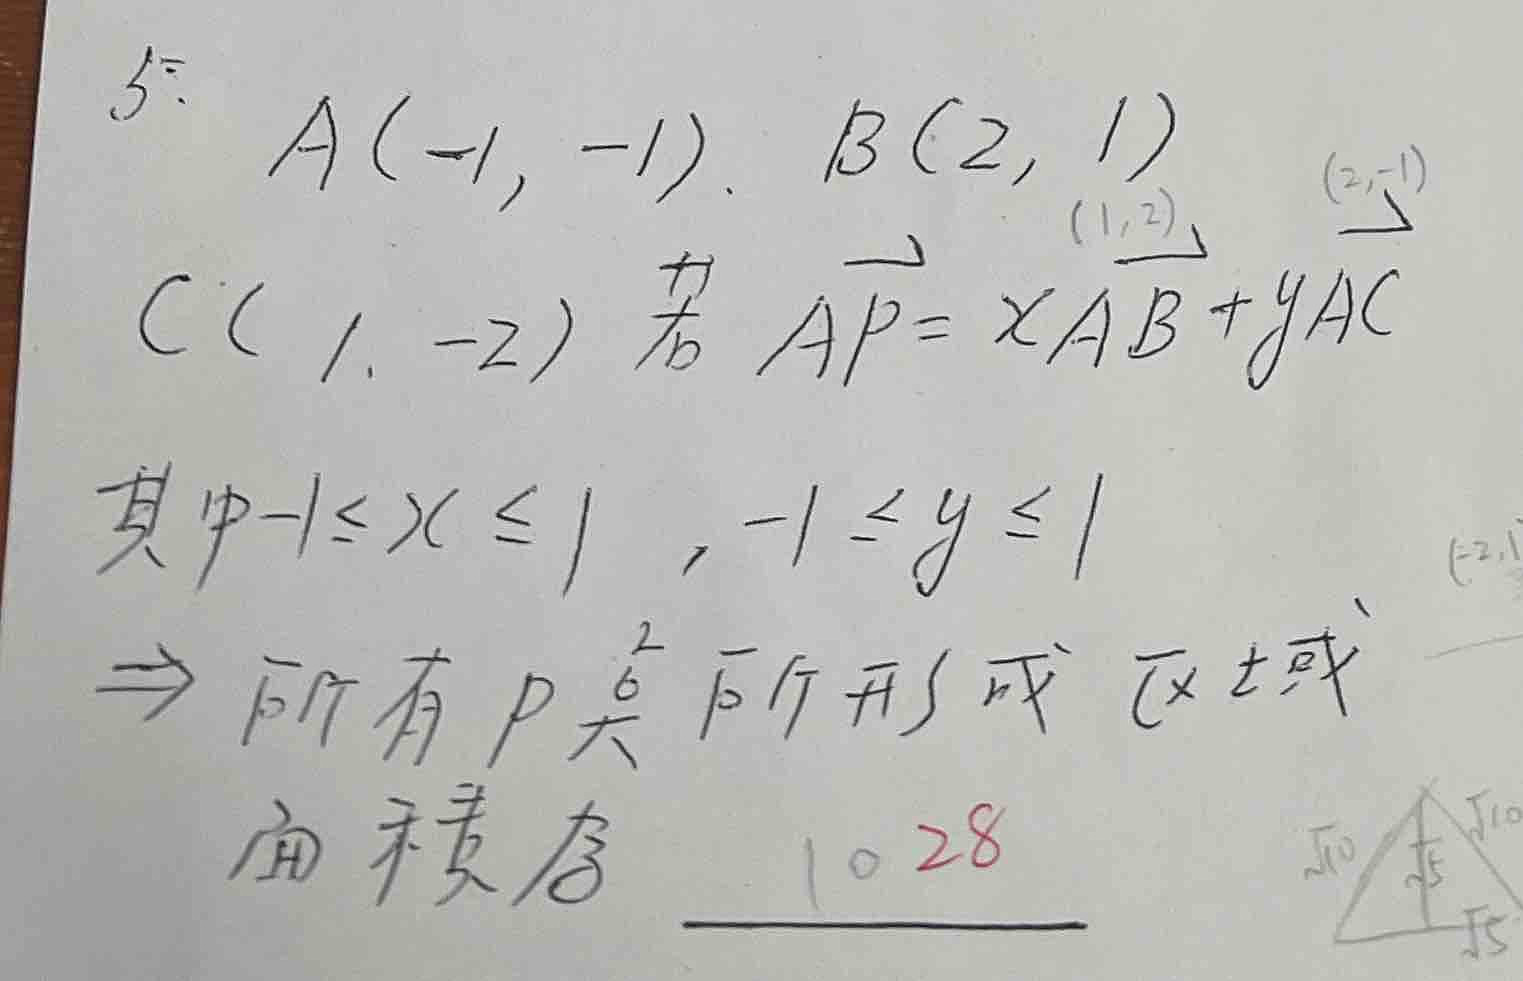 5.
A(-1, -1). B(2, 1)
(1,2) (2,-1)
C(1. -2) 若 AP = xAB + yAC
其中 -1 ≤ x ≤ 1 , -1 ≤ y ≤ 1
(-2,1
⇒ 所有P点所形成区域
面積為 10 28
√10 √5 √10
√5